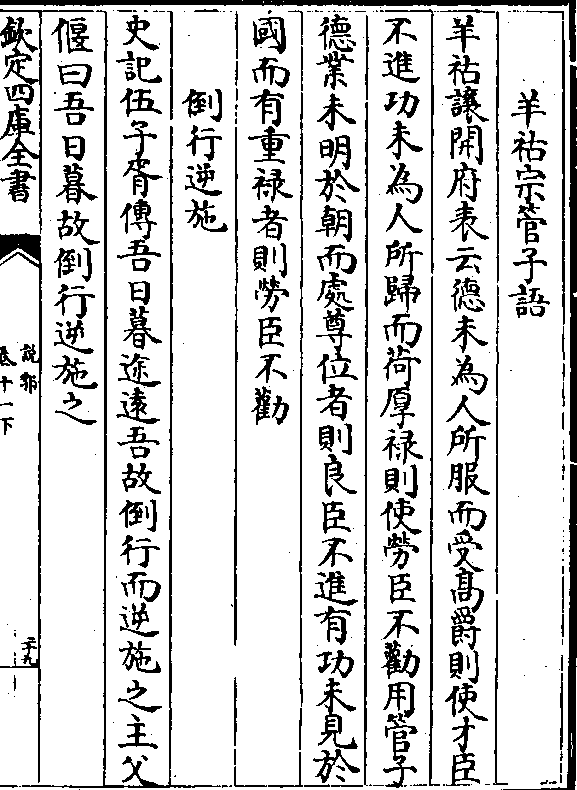 羊祜宗管子語
羊祜讓開府表云德未為人所服而受髙爵則使才臣
不進功未為人所歸而荷厚禄則使勞臣不勸用管子
德業未明於朝而處尊位者則良臣不進有功未見於
國而有重禄者則勞臣不勸
倒行逆施
史記伍子胥傳吾日暮途遠吾故倒行而逆施之主父
偃曰吾日暮故倒行逆施之
欽定四庫全書
説郛
卷十一下
二十九